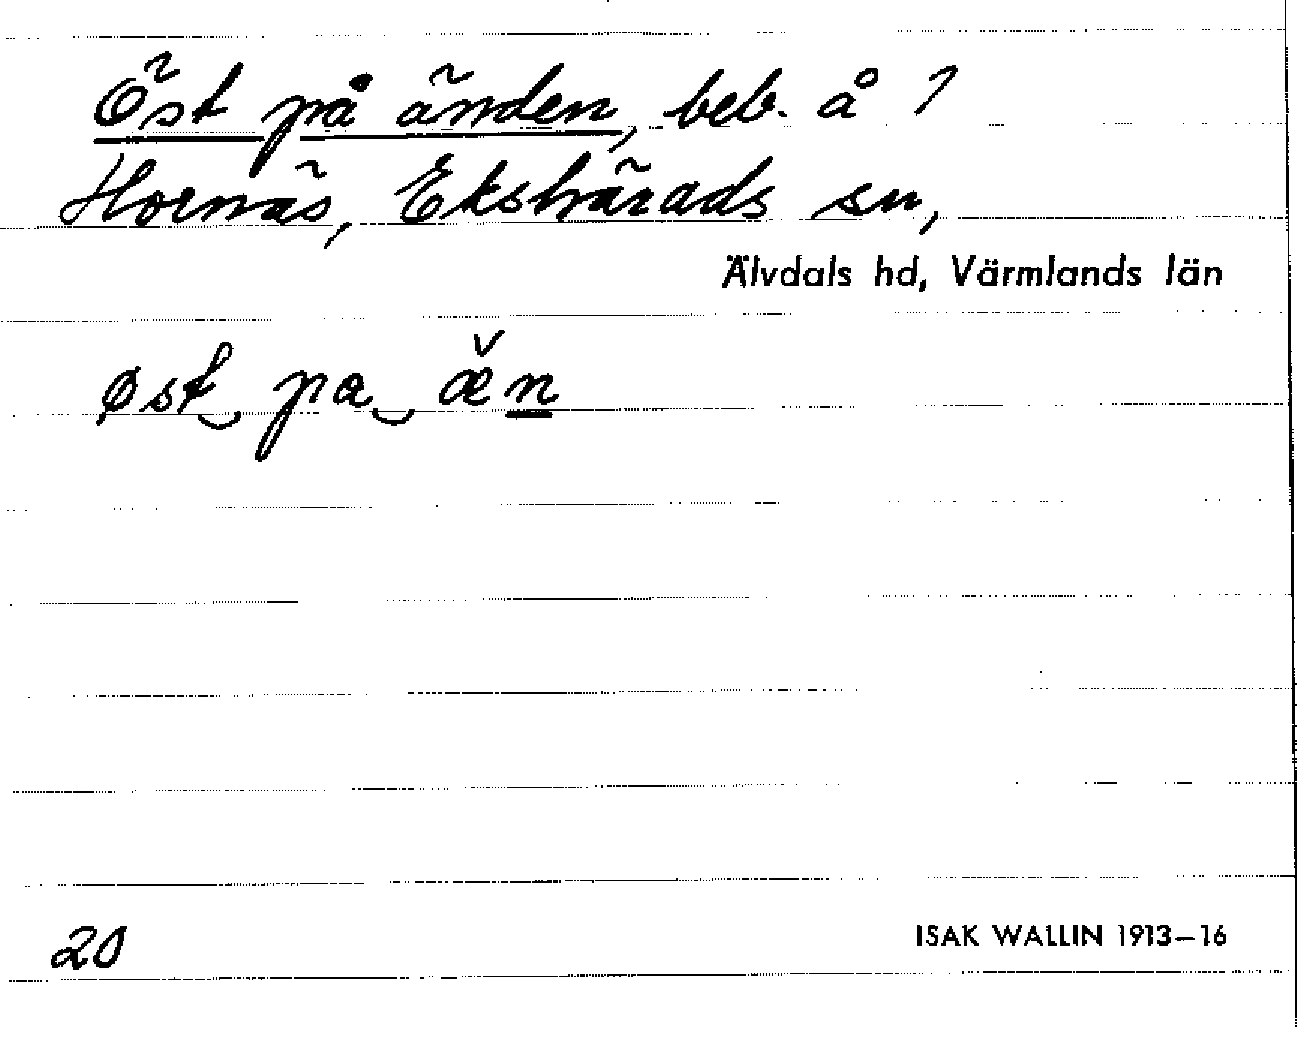 Öst på änden, beb. å 1
Hornäs, Ekshärads sn,
Älvdals hd, Värmlands län
øst‿ pa‿ æ̌n̲
20
ISAK WALLIN 1913–16